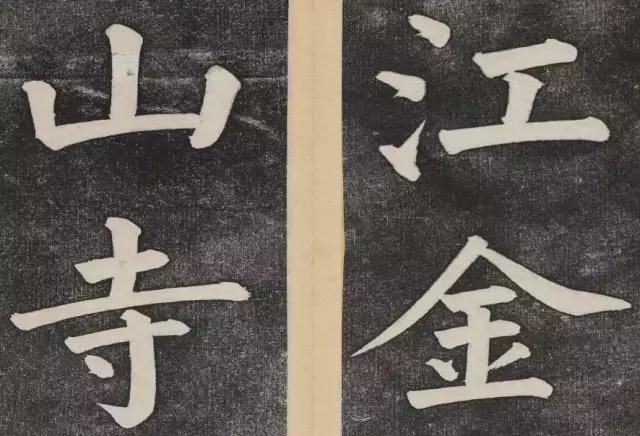 江金
山寺